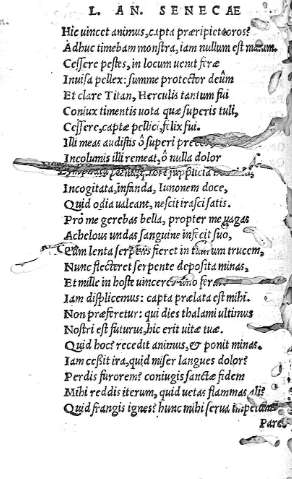 L. AN. SENECAE
Hic uincet animus, capta præripiet toros?
Adhuc timebam monstra, iam nullum est malum.
Cessere pestes, in locum uenit feræ
Inuisa pellex: summe protector deûm
Et clare Titan, Herculis tantum fui
Coniux timentis uota quæ superis tuli,
Cessere, captæ pellici felix fui.
Illi meas audistis ô superi preces,
Incolumis illi remeat, ô nulla dolor
Incogitata, infanda, Iunonem doce,
Quid odia ualeant, nescit irasci satis.
Pro me gerebas bella, propter me uagas
Achelous undas sanguine infecit suo,
Cum lenta serpens fieret in trucem,
Nunc flecteret serpente deposita minas,
Et mille in hoste uinceres uno feras.
Iam displicemus: capta prælata est mihi.
Non præferetur: qui dies thalami ultimus
Nostri est futurus, hic erit uitæ tuæ.
Quid hoc? recedit animus, & ponit minas.
Iam cessit ira, quid miser langues dolor?
Perdis furorem? coniugis sanctæ fidem
Mihi reddis iterum, quid uetas flammas ali?
Quid frangis ignes? hunc mihi serua impetum
Pares